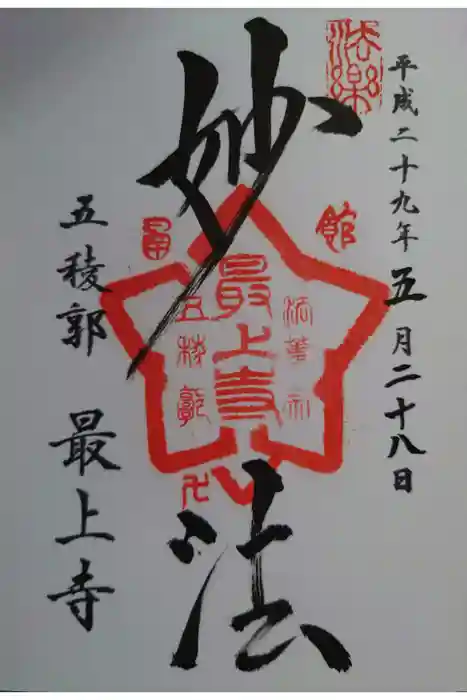 平成二十九年五月二十八日
法樂
妙法
館
最上寺
五稜郭
卍
五稜郭
最上寺